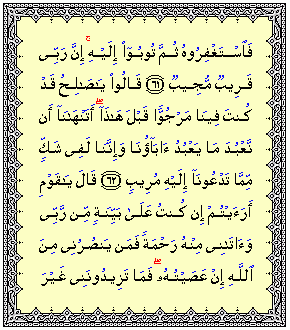 فَٱسْتَغْفِرُوهُ ثُمَّ تُوبُوٓا۟ إِلَيْهِ ۚ إِنَّ رَبِّى
قَرِيبٌ مُّجِيبٌ ﴿٦١﴾ قَالُوا۟ يَـٰصَـٰلِحُ قَدْ
كُنتَ فِينَا مَرْجُوًّا قَبْلَ هَـٰذَآ ۖ أَتَنْهَىٰنَآ أَن
نَّعْبُدَ مَا يَعْبُدُ ءَابَآؤُنَا وَإِنَّنَا لَفِى شَكٍّ
مِّمَّا تَدْعُونَآ إِلَيْهِ مُرِيبٍ ﴿٦٢﴾ قَالَ يَـٰقَوْمِ
أَرَءَيْتُمْ إِن كُنتُ عَلَىٰ بَيِّنَةٍ مِّن رَّبِّى
وَءَاتَىٰنِى مِنْهُ رَحْمَةً فَمَن يَنصُرُنِى مِنَ
ٱللَّهِ إِنْ عَصَيْتُهُۥ ۖ فَمَا تَزِيدُونَنِى غَيْرَ